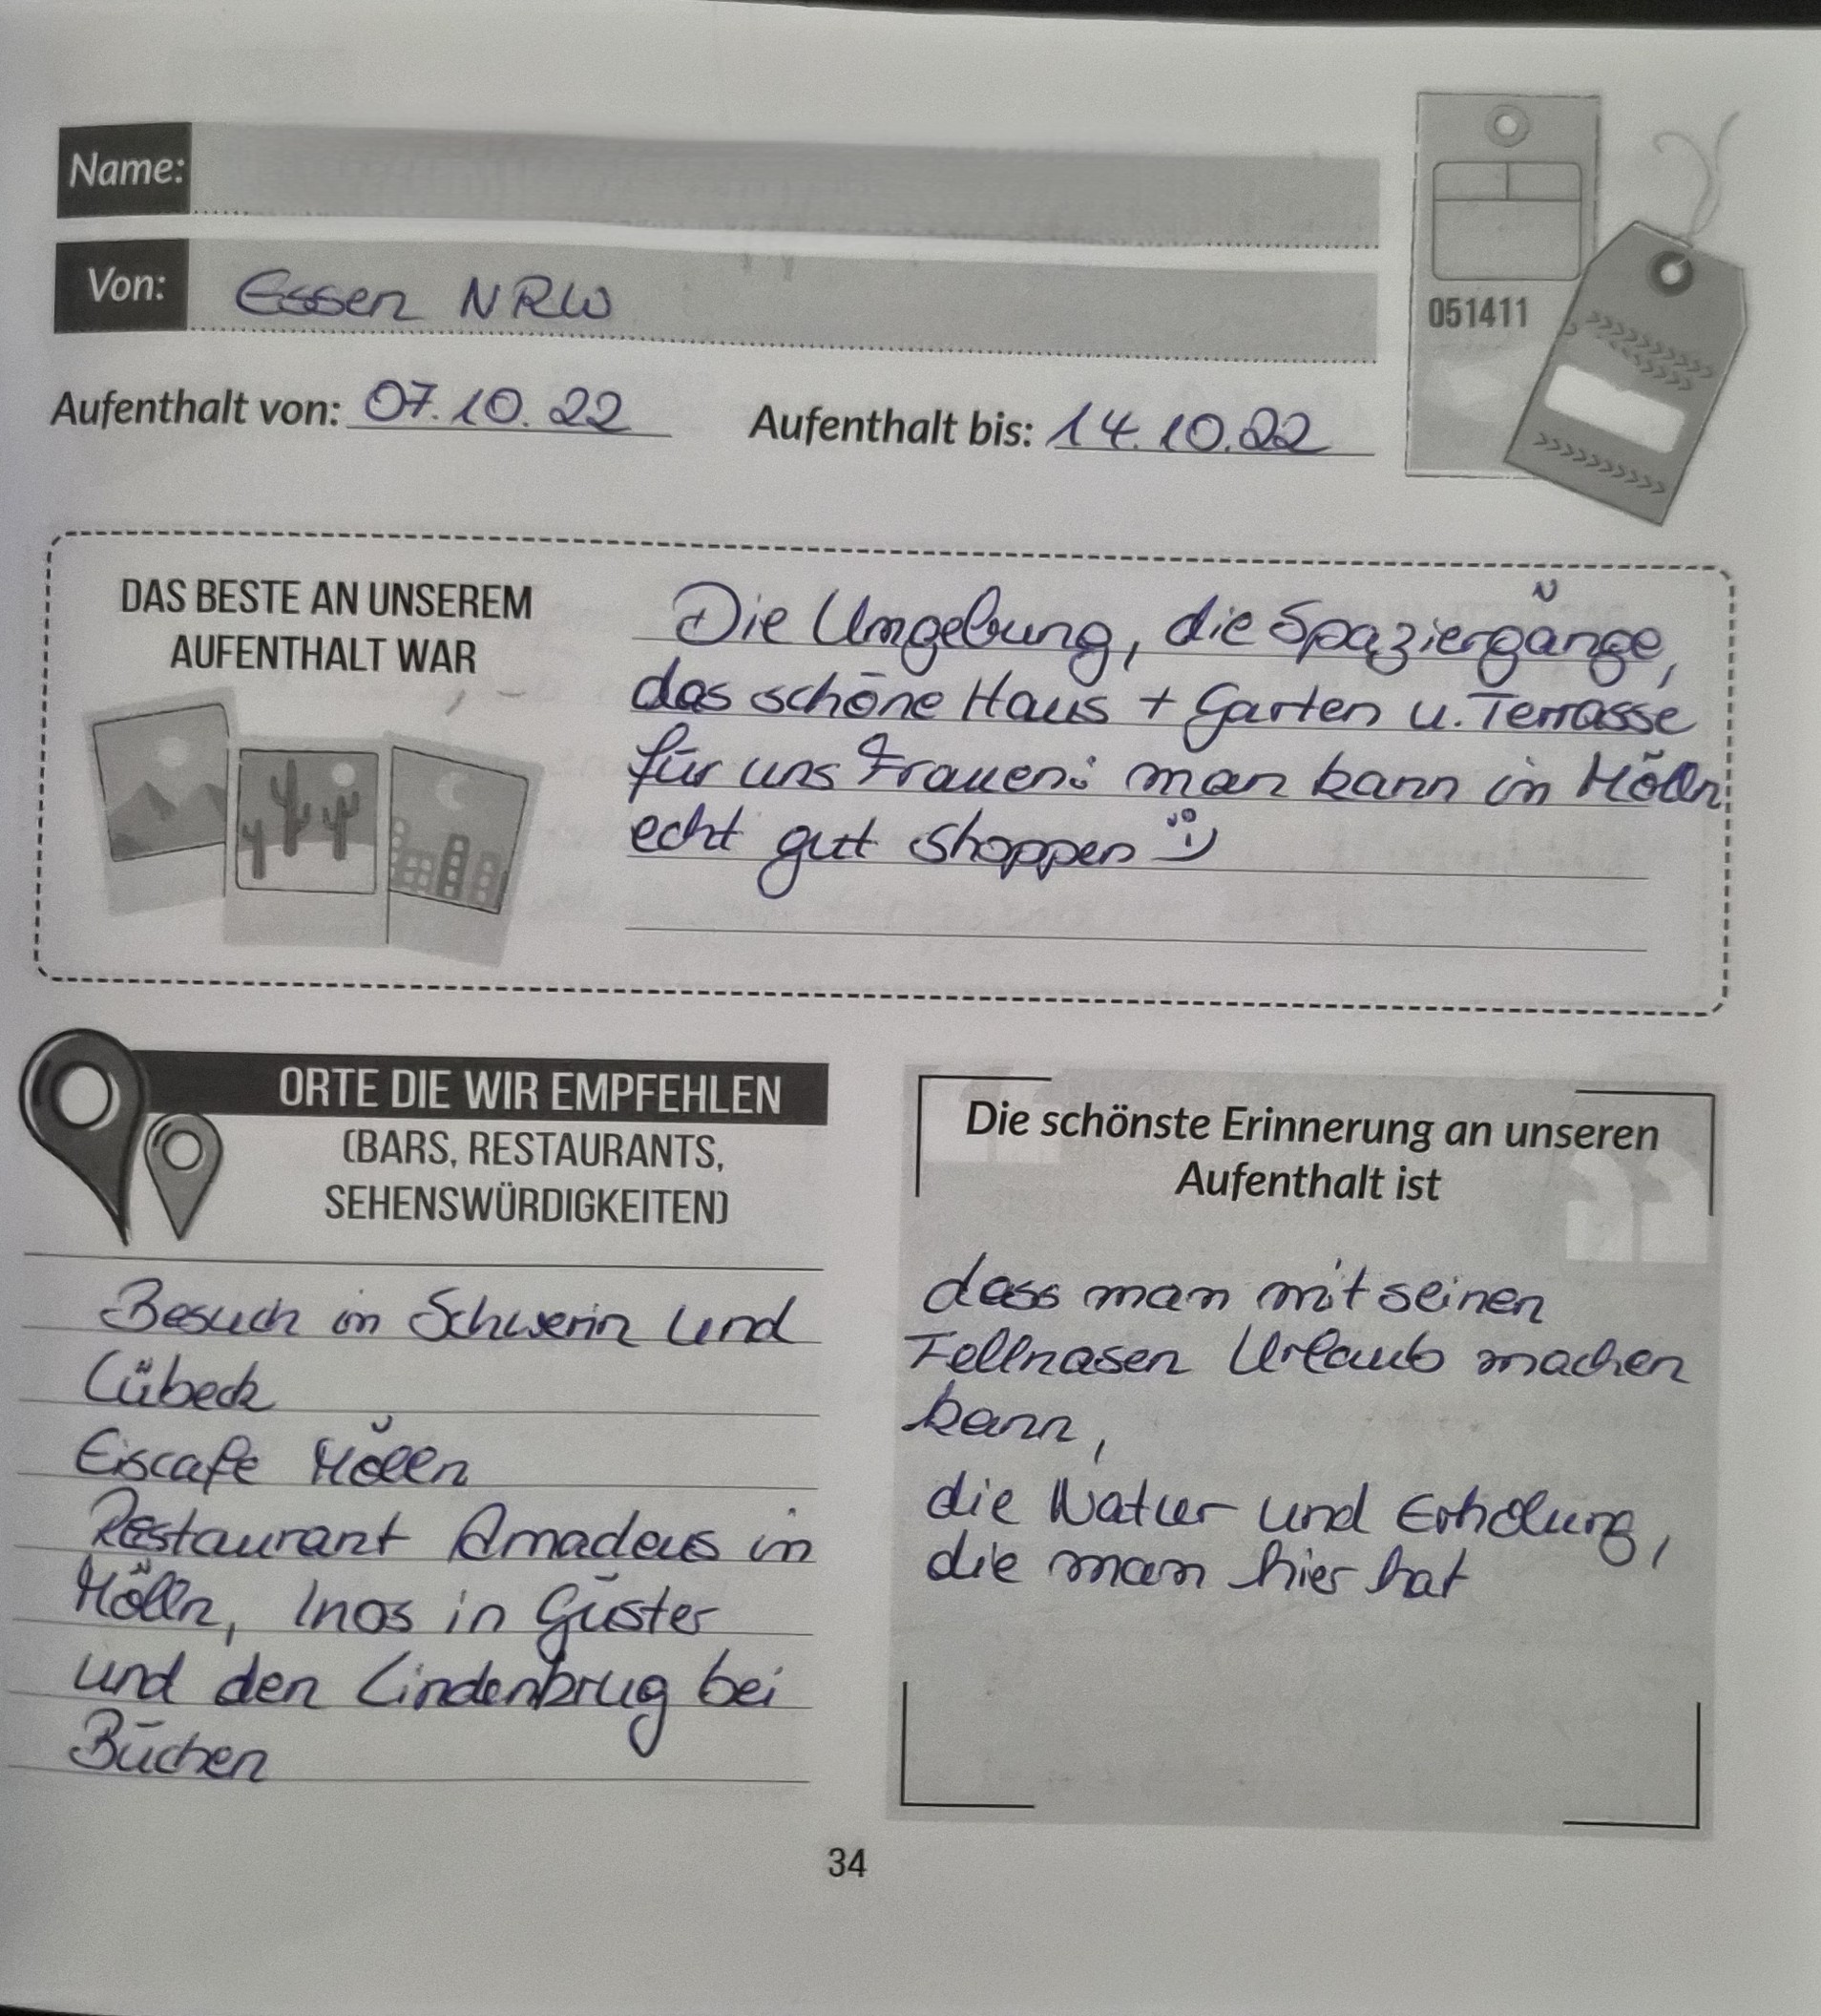 Name:
Von: Essen NRW
051411
Aufenthalt von: 07.10.22 Aufenthalt bis: 14.10.22
DAS BESTE AN UNSEREM
AUFENTHALT WAR
Die Umgebung, die Spaziergänge,
das schöne Haus + Garten u. Terrasse
für uns Frauen: man kann in Mölln
echt gut shoppen
ORTE DIE WIR EMPFEHLEN
(BARS, RESTAURANTS,
SEHENSWÜRDIGKEITEN)
Besuch in Schwerin und
Lübeck
Eiscafe Mölln
Restaurant Amadeus in
Mölln, Inos in Güster
und den Lindenbrug bei
Büchen
Die schönste Erinnerung an unseren
Aufenthalt ist
dass man mit seinen
Fellnasen Urlaub machen
kann,
die Natur und Erholung,
die man hier hat
34